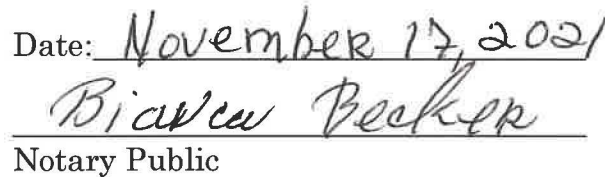 Date: November 17, 2021
Bianca Becker
Notary Public